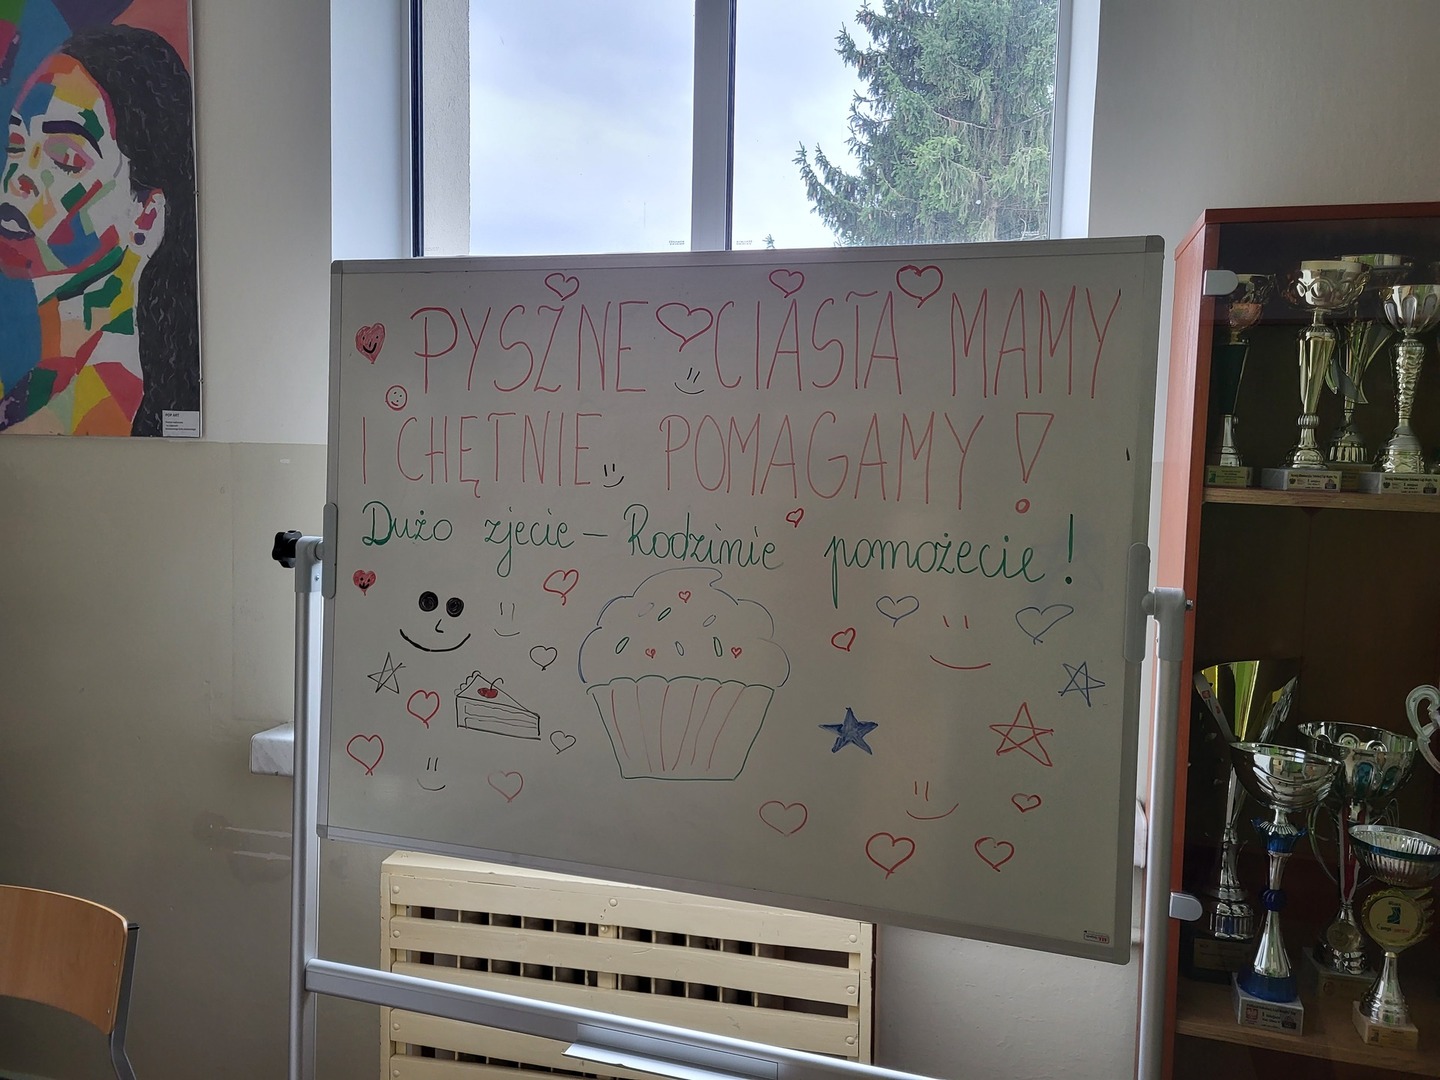 PYSZNE CIASTA MAMY
I CHĘTNIE POMAGAMY!
Dużo zjecie – Rodzinie pomożecie!
POP ART